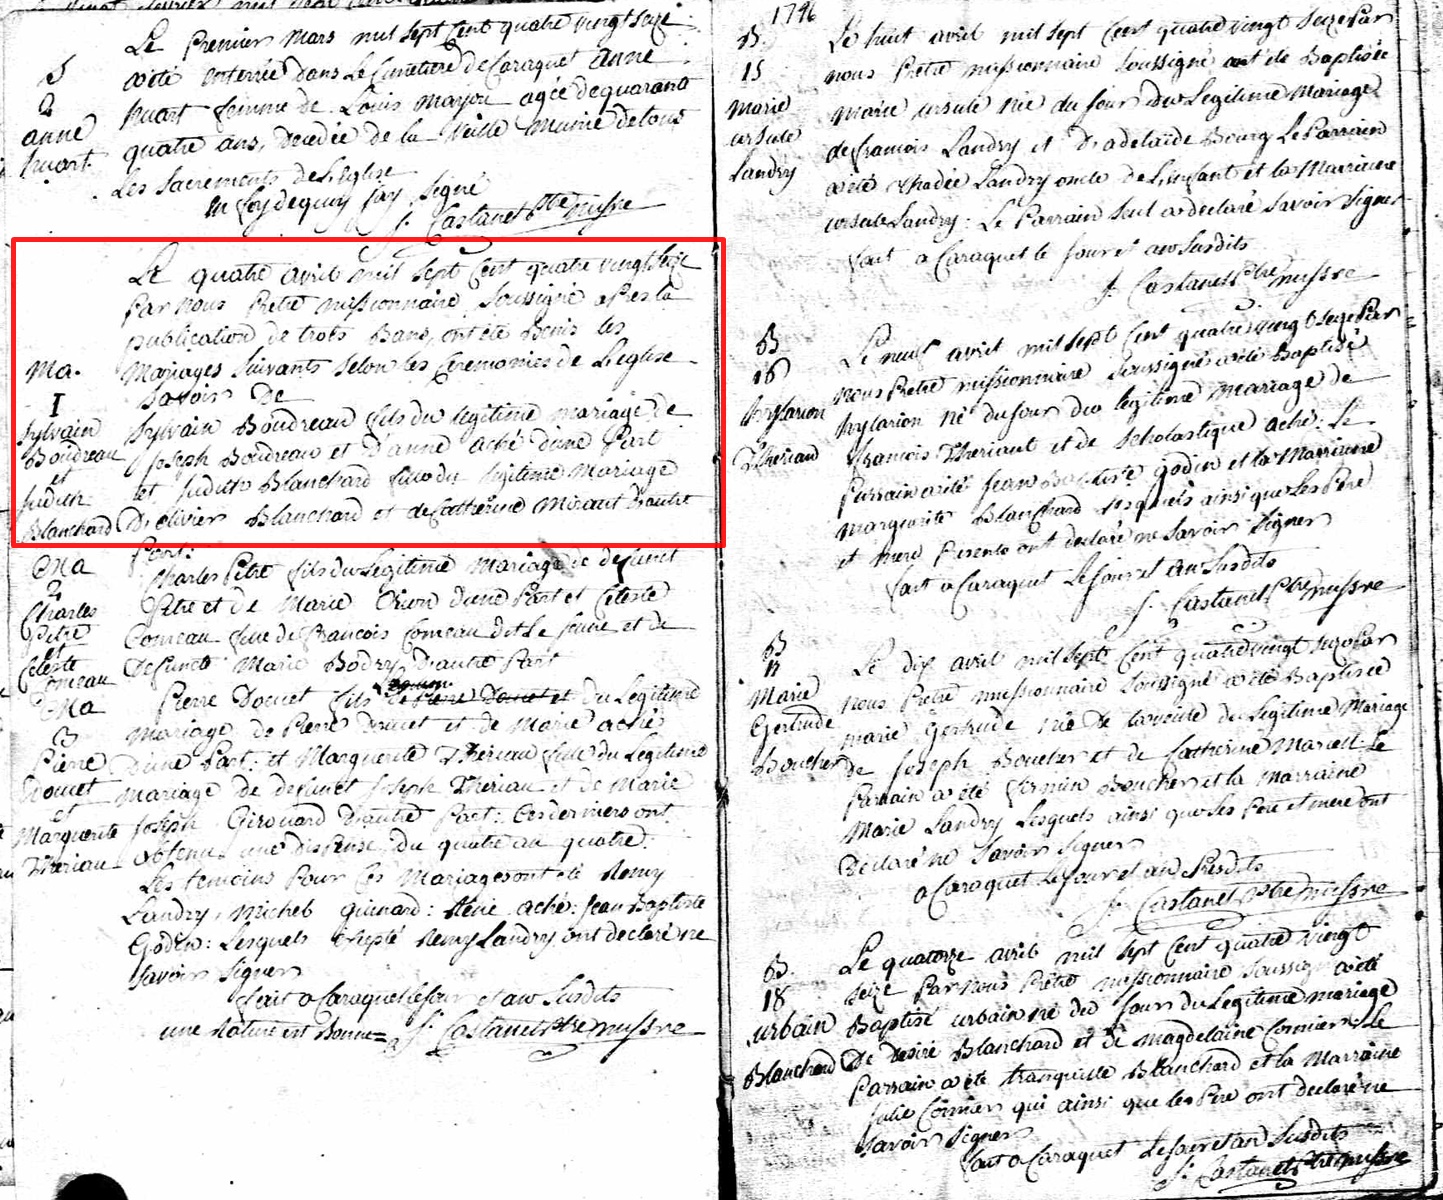 Le Premier Mars mil sept Cent quatre vingt seize
S
2
anne
huart
a été enterrée dans Le Cimetiere de Caraquet anne
huart femme de Louis mayou agée de quarante
quatre ans, Decedée de la Veille Munie de tous
Les Sacrements de L'eglise
en foy de quoy j'ay Signé
J. Castanet Ptre missre
Le quatre avril mil sept Cent quatre vingt seize
Par Nous Pretre missionnaire Soussigné apres la
publication de trois Bans, ont été Benis les
Mariages Suivants Selon les Ceremonies de L'eglise
Savoir De
Ma.
1
Sylvain
Boudreau
et
Judith
Blanchard
Sylvain Boudreau fils du legitime mariage de
Joseph Boudreau et D'anne aché d'une Part
et Judith Blanchard fille du legitime Mariage
D'olivier Blanchard et de Catherine Mirant D'autre
Part.
Ma
2
Charles
Pitre
et
Celeste
Comeau
Charles Pitre fils du Legitime Mariage de defunct
Pitre et de Marie d'une Part et Celeste
Comeau fille de francois Comeau dit Le jeune et de
Defuncte Marie Bodry D'autre Part
Ma
3
Pierre
Doucet
et
Marguerite
Theriau
Pierre Doucet fils de Pierre Doucet et du Legitime
mariage de Pierre Doucet et de Marie aché
D'une Part. et Marguerite Theriau fille du Legitime
mariage de defunct Joseph Theriau et de Marie
Joseph Girouard D'autre Part: Ces derniers ont
obtenu une dispense du quatre au quatre.
Les temoins Pour Ces Mariages ont été Remy
Landry, Michel Guinard: René aché: Jean Baptiste
Godin: Lesquels Excepté Remy Landry ont declaré ne
Savoir Signer
fait a Caraquet Le jour et an Susdits
une Rature est Bonne= J. Castanet Ptre missre
1796
B.
15
Marie
ursule
Landry
Le huit avril mil sept Cent quatre vingt Seize Par
nous Prêtre missionnaire Soussigné a été Baptisée
Marie ursule Née du jour Du Legitime Mariage
de francois Landry et D'adelaide Bourg Le Parrain
a été thadée Landry oncle de L'enfant et la Marraine
ursule Landry: Le Parrain Seul a declaré Savoir Signer
fait a Caraquet le jour et an Susdits
J. Castanet Ptre missre
B
16
hylarion
Theriau
Le neuf avril mil sept Cent quatre vingt seize Par
nous Pretre missionnaire Soussigné a été Baptisé
hylarion Né du jour du legitime Mariage de
francois Theriaut et de Scholastique aché: Le
Parrain a été Jean Baptiste godin et la Marraine
Marguerite Blanchard lesquels ainsi que Les Père
et mere Presents ont declaré ne Savoir Signer
fait a Caraquet Le jour et an Susdits
J. Castanet Ptre missre
B
17
Marie
Gertrude
Boucher
Le dix avril mil sept Cent quatre vingt seize Par
nous Pretre missionnaire Soussigné a été Baptisée
marie Gertrude Née de la veille du Legitime Mariage
de Joseph Boucher et de Catherine Mariett: Le
Parrain a été firmin Boucher et la Marraine
Marie Landry Lesquels ainsi que Les Pere et mere ont
Declaré ne Savoir Signer
a Caraquet Le jour et an Susdits
J. Castanet Ptre missre
B.
18
urbain
Blanchard
Le quatorze avril mil sept Cent quatre vingt
seize Par Nous Prêtre missionnaire Soussigné a été
Baptisé urbain né du jour du Legitime mariage
De Desiré Blanchard et de magdelaine Cormier: Le
Parrain a été tranquille Blanchard et la Marraine
Julie Cormier qui ainsi que les Pere ont declaré ne
Savoir Signer
fait a Caraquet Le jour et an Susdits
J. Castanet Ptre missre